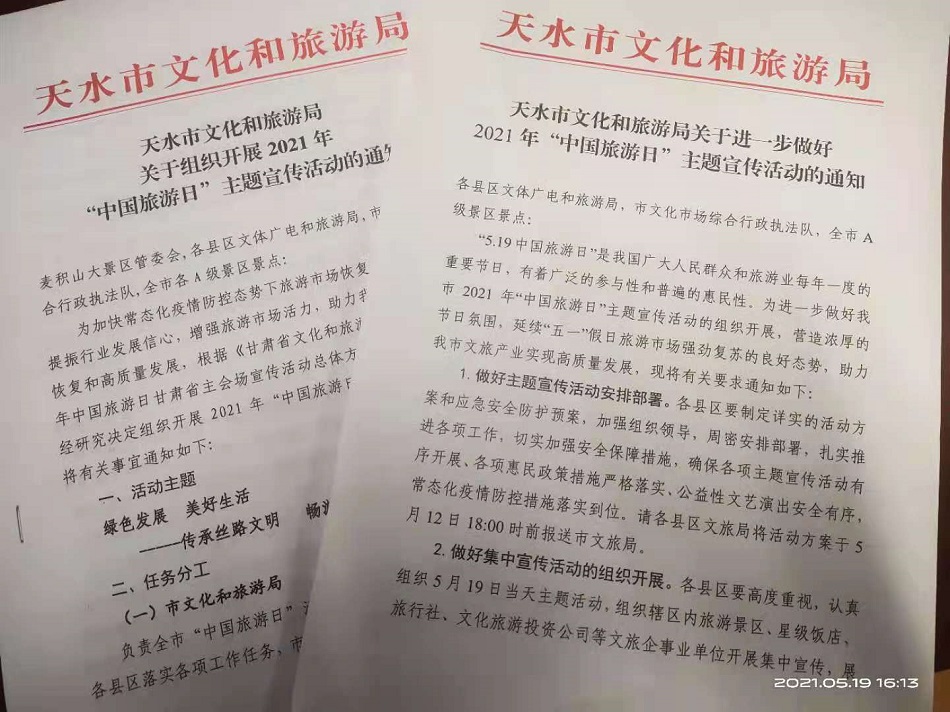 天水市文化和旅游局
天水市文化和旅游局
关于组织开展 2021 年
“中国旅游日”主题宣传活动的通知
麦积山大景区管委会,各县区文体广电和旅游局,市
合行政执法队,全市各A级景区景点:
为加快常态化疫情防控态势下旅游市场恢复
提振行业发展信心,增强旅游市场活力,助力
恢复和高质量发展,根据《甘肃省文化和旅游
年中国旅游日甘肃省主会场宣传活动总体方
经研究决定组织开展 2021 年“中国旅游日
将有关事宜通知如下:
一、活动主题
绿色发展 美好生活
——传承丝路文明 畅游
二、任务分工
(一)市文化和旅游局
负责全市“中国旅游日”
各县区落实各项工作任务,市
天水市文化和旅游局
天水市文化和旅游局关于进一步做好
2021 年“中国旅游日”主题宣传活动的通知
各县区文体广电和旅游局,市文化市场综合行政执法队,全市 A
级景区景点:
“5.19 中国旅游日”是我国广大人民群众和旅游业每年一度的
重要节日,有着广泛的参与性和普遍的惠民性。为进一步做好我
市 2021 年“中国旅游日”主题宣传活动的组织开展,营造浓厚的
节日氛围,延续“五一”假日旅游市场强劲复苏的良好态势,助力
我市文旅产业实现高质量发展,现将有关要求通知如下:
1. 做好主题宣传活动安排部署。各县区要制定详实的活动方
案和应急安全防护预案,加强组织领导,周密安排部署,扎实推
进各项工作,切实加强安全保障措施,确保各项主题宣传活动有
序开展、各项惠民政策措施严格落实、公益性文艺演出安全有序,
常态化疫情防控措施落实到位。请各县区文旅局将活动方案于 5
月 12 日 18:00 时前报送市文旅局。
2. 做好集中宣传活动的组织开展。各县区要高度重视,认真
组织 5 月 19 日当天主题活动,组织辖区内旅游景区、星级饭店、
旅行社、文化旅游投资公司等文旅企事业单位开展集中宣传,展
2021.05.19 16:13